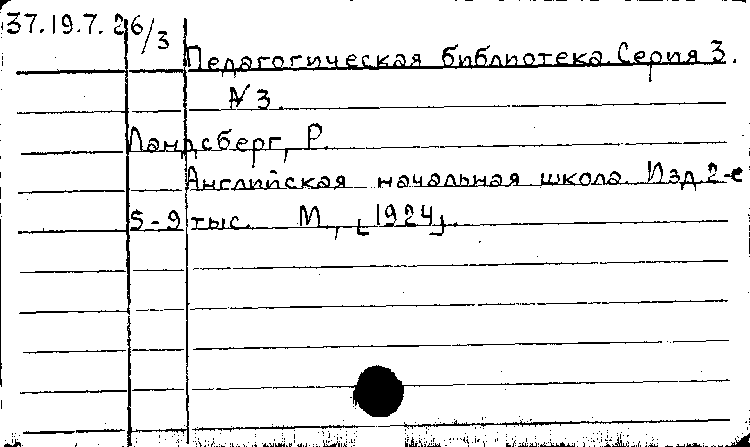 37.19.7.26/3
Педагогическая библиотека. Серия 3.
№ 3.
Ландсберг, Р.
Английская начальная школа. Изд 2-е
5-9 тыс. М., [1924].